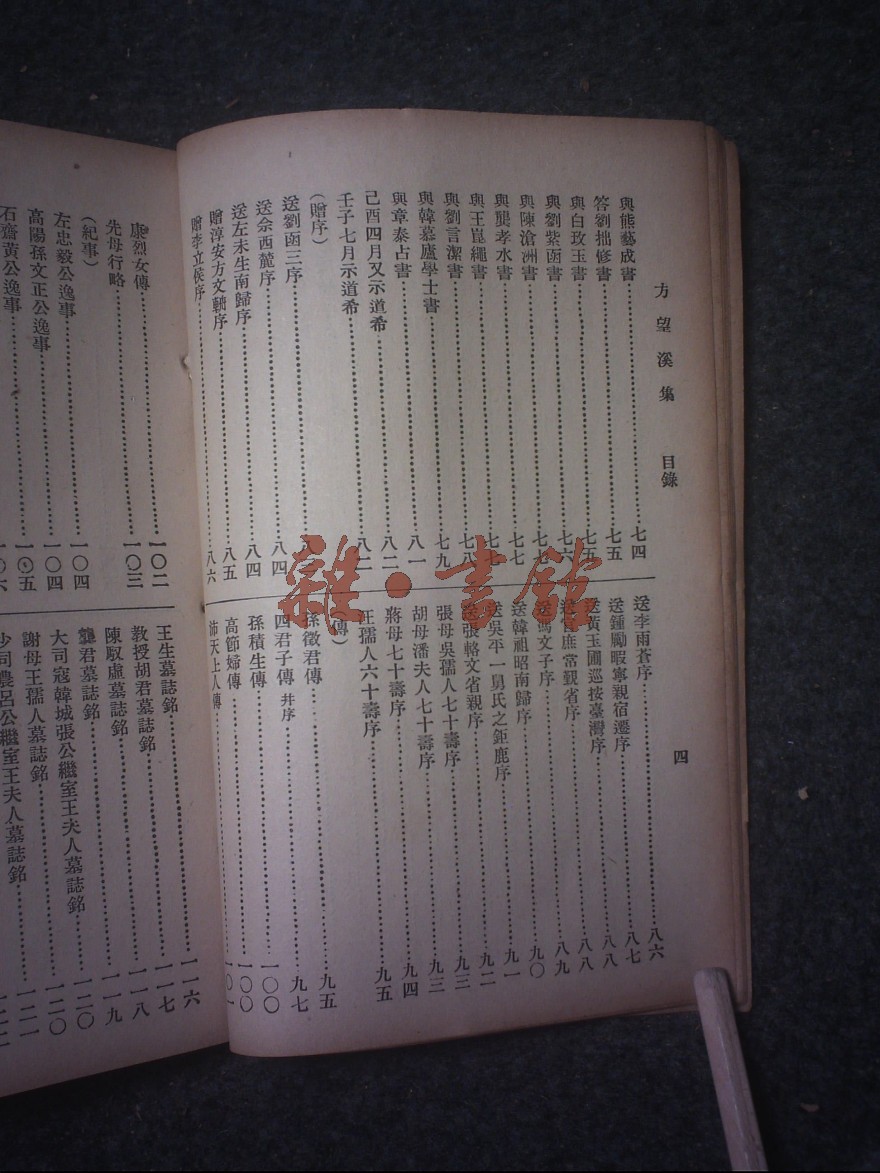 方望溪集 目錄 四
與熊藝成書 七四
答劉拙修書 七五
與白玫玉書 七五
與劉紫函書 七六
與陳滄洲書
與龔孝水書
與王崑繩書
與劉言潔書 七八
與韓慕廬學士書 七九
與章泰占書 八一
己酉四月又示道希 八二
壬子七月示道希 八二
(贈序)
送劉函三序
送佘西麓序 八四
送左未生南歸序 八四
贈淳安方文輈序 八五
贈李立侯序 八六
送李雨蒼序 八六
送鍾勵暇寧親宿遷序 八七
送黃玉圃巡按臺灣序 八八
常覲省序 八八
文子序 八九
送韓祖昭南歸序 九〇
送吳平一舅氏之鉅鹿序 九一
送張輅文省親序 九二
張母吳孺人七十壽序 九三
胡母潘夫人七十壽序 九三
蔣母七十壽序 九四
汪孺人六十壽序 九五
傳)
孫徵君傳 九五
四君子傳 并序 九七
孫積生傳 一〇〇
高節婦傳 一〇〇
天上人傳 一〇一
康烈女傳 一〇二
先母行略 一〇三
(紀事)
左忠毅公逸事 一〇四
高陽孫文正公逸事 一〇四
石齋黃公逸事 一〇五
一〇六
王生墓誌銘 一一六
教授胡君墓誌銘 一一七
陳馭虛墓誌銘 一一八
龔君墓誌銘 一一九
大司寇韓城張公繼室王夫人墓誌銘 一二〇
謝母王孺人墓誌銘 一二〇
少司農呂公繼室王夫人墓誌銘 一二一
雜·書館